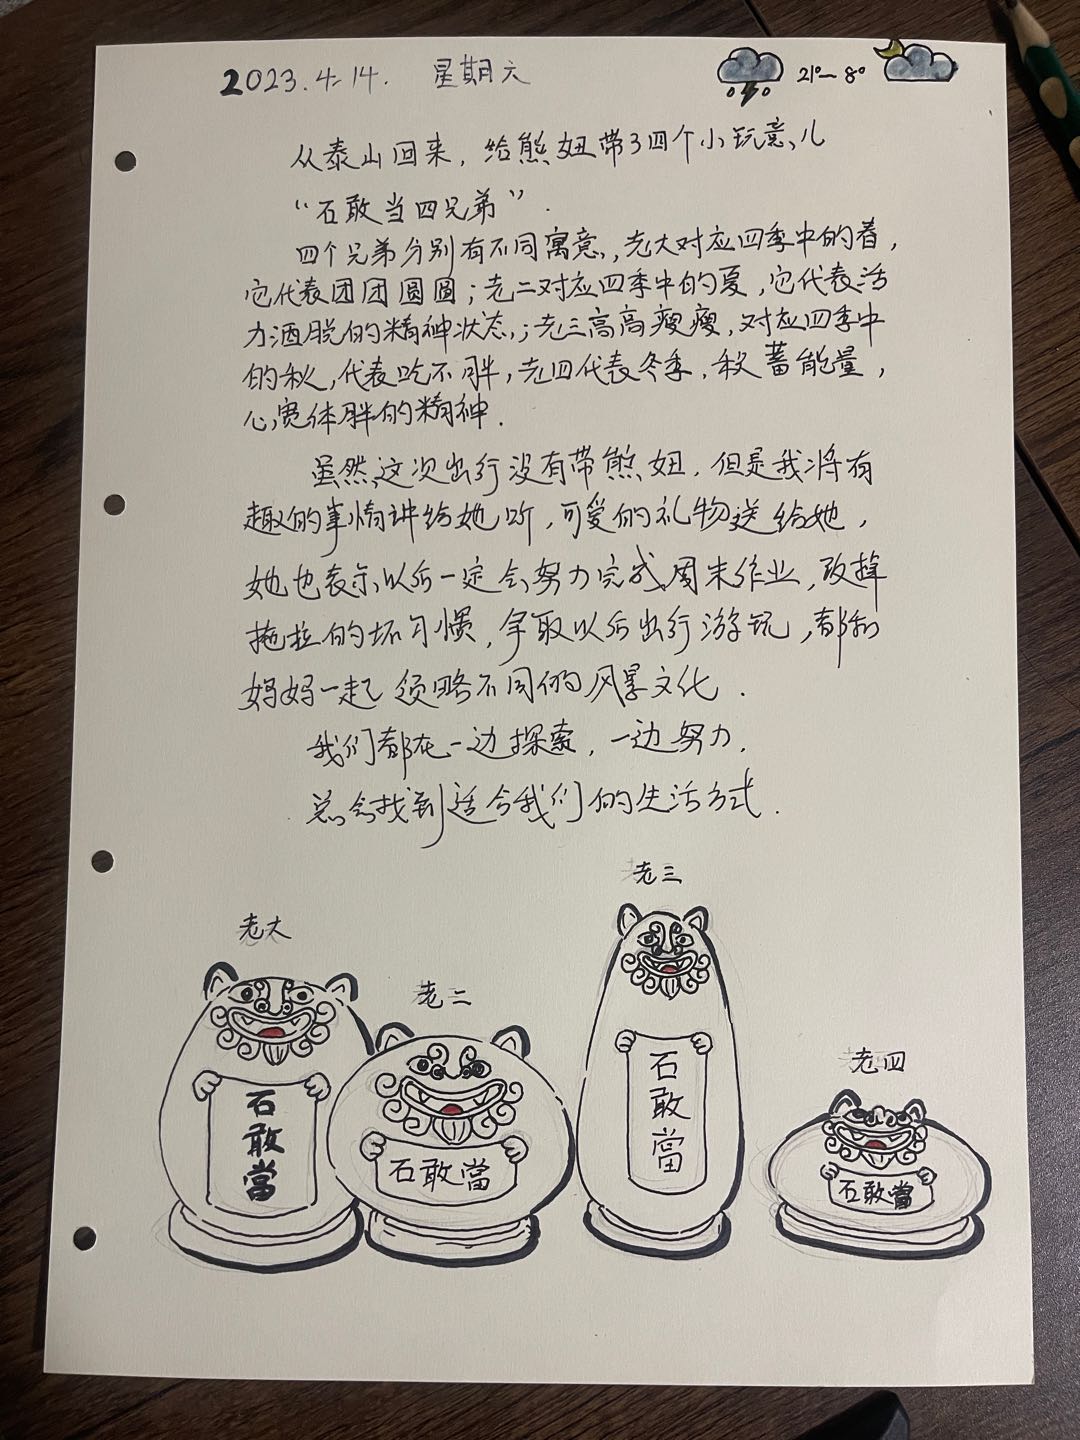 2023.4.14. 星期六
21°~8°
从泰山回来，给熊妞带了四个小玩意儿
“石敢当四兄弟”.
四个兄弟分别有不同寓意，老大对应四季中的春，
它代表团团圆圆；老二对应四季中的夏，它代表活
力洒脱的精神状态，；老三高高瘦瘦，对应四季中
的秋，代表吃不胖，老四代表冬季，积蓄能量，
心宽体胖的精神.
虽然这次出行没有带熊妞，但是我将有
趣的事情讲给她听，可爱的礼物送给她，
她也表示以后一定会努力完成周末作业，改掉
拖拉的坏习惯，争取以后出行游玩，都和
妈妈一起领略不同的风景文化.
我们都在一边探索，一边努力.
总会找到适合我们的生活方式.
老大
老二
老三
老四
石敢當
石敢當
石敢當
石敢當